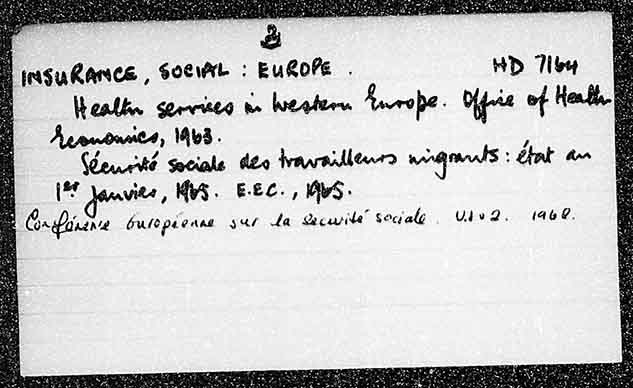 INSURANCE, SOCIAL : EUROPE. HD 7164
Health services in Western Europe. Office of Health
Economics, 1963.
Sécurité sociale des travailleurs migrants : état au
1er janvier, 1965. E.E.C., 1965.
Conférence Européenne sur la sécurité sociale. V.1 & 2. 1962.